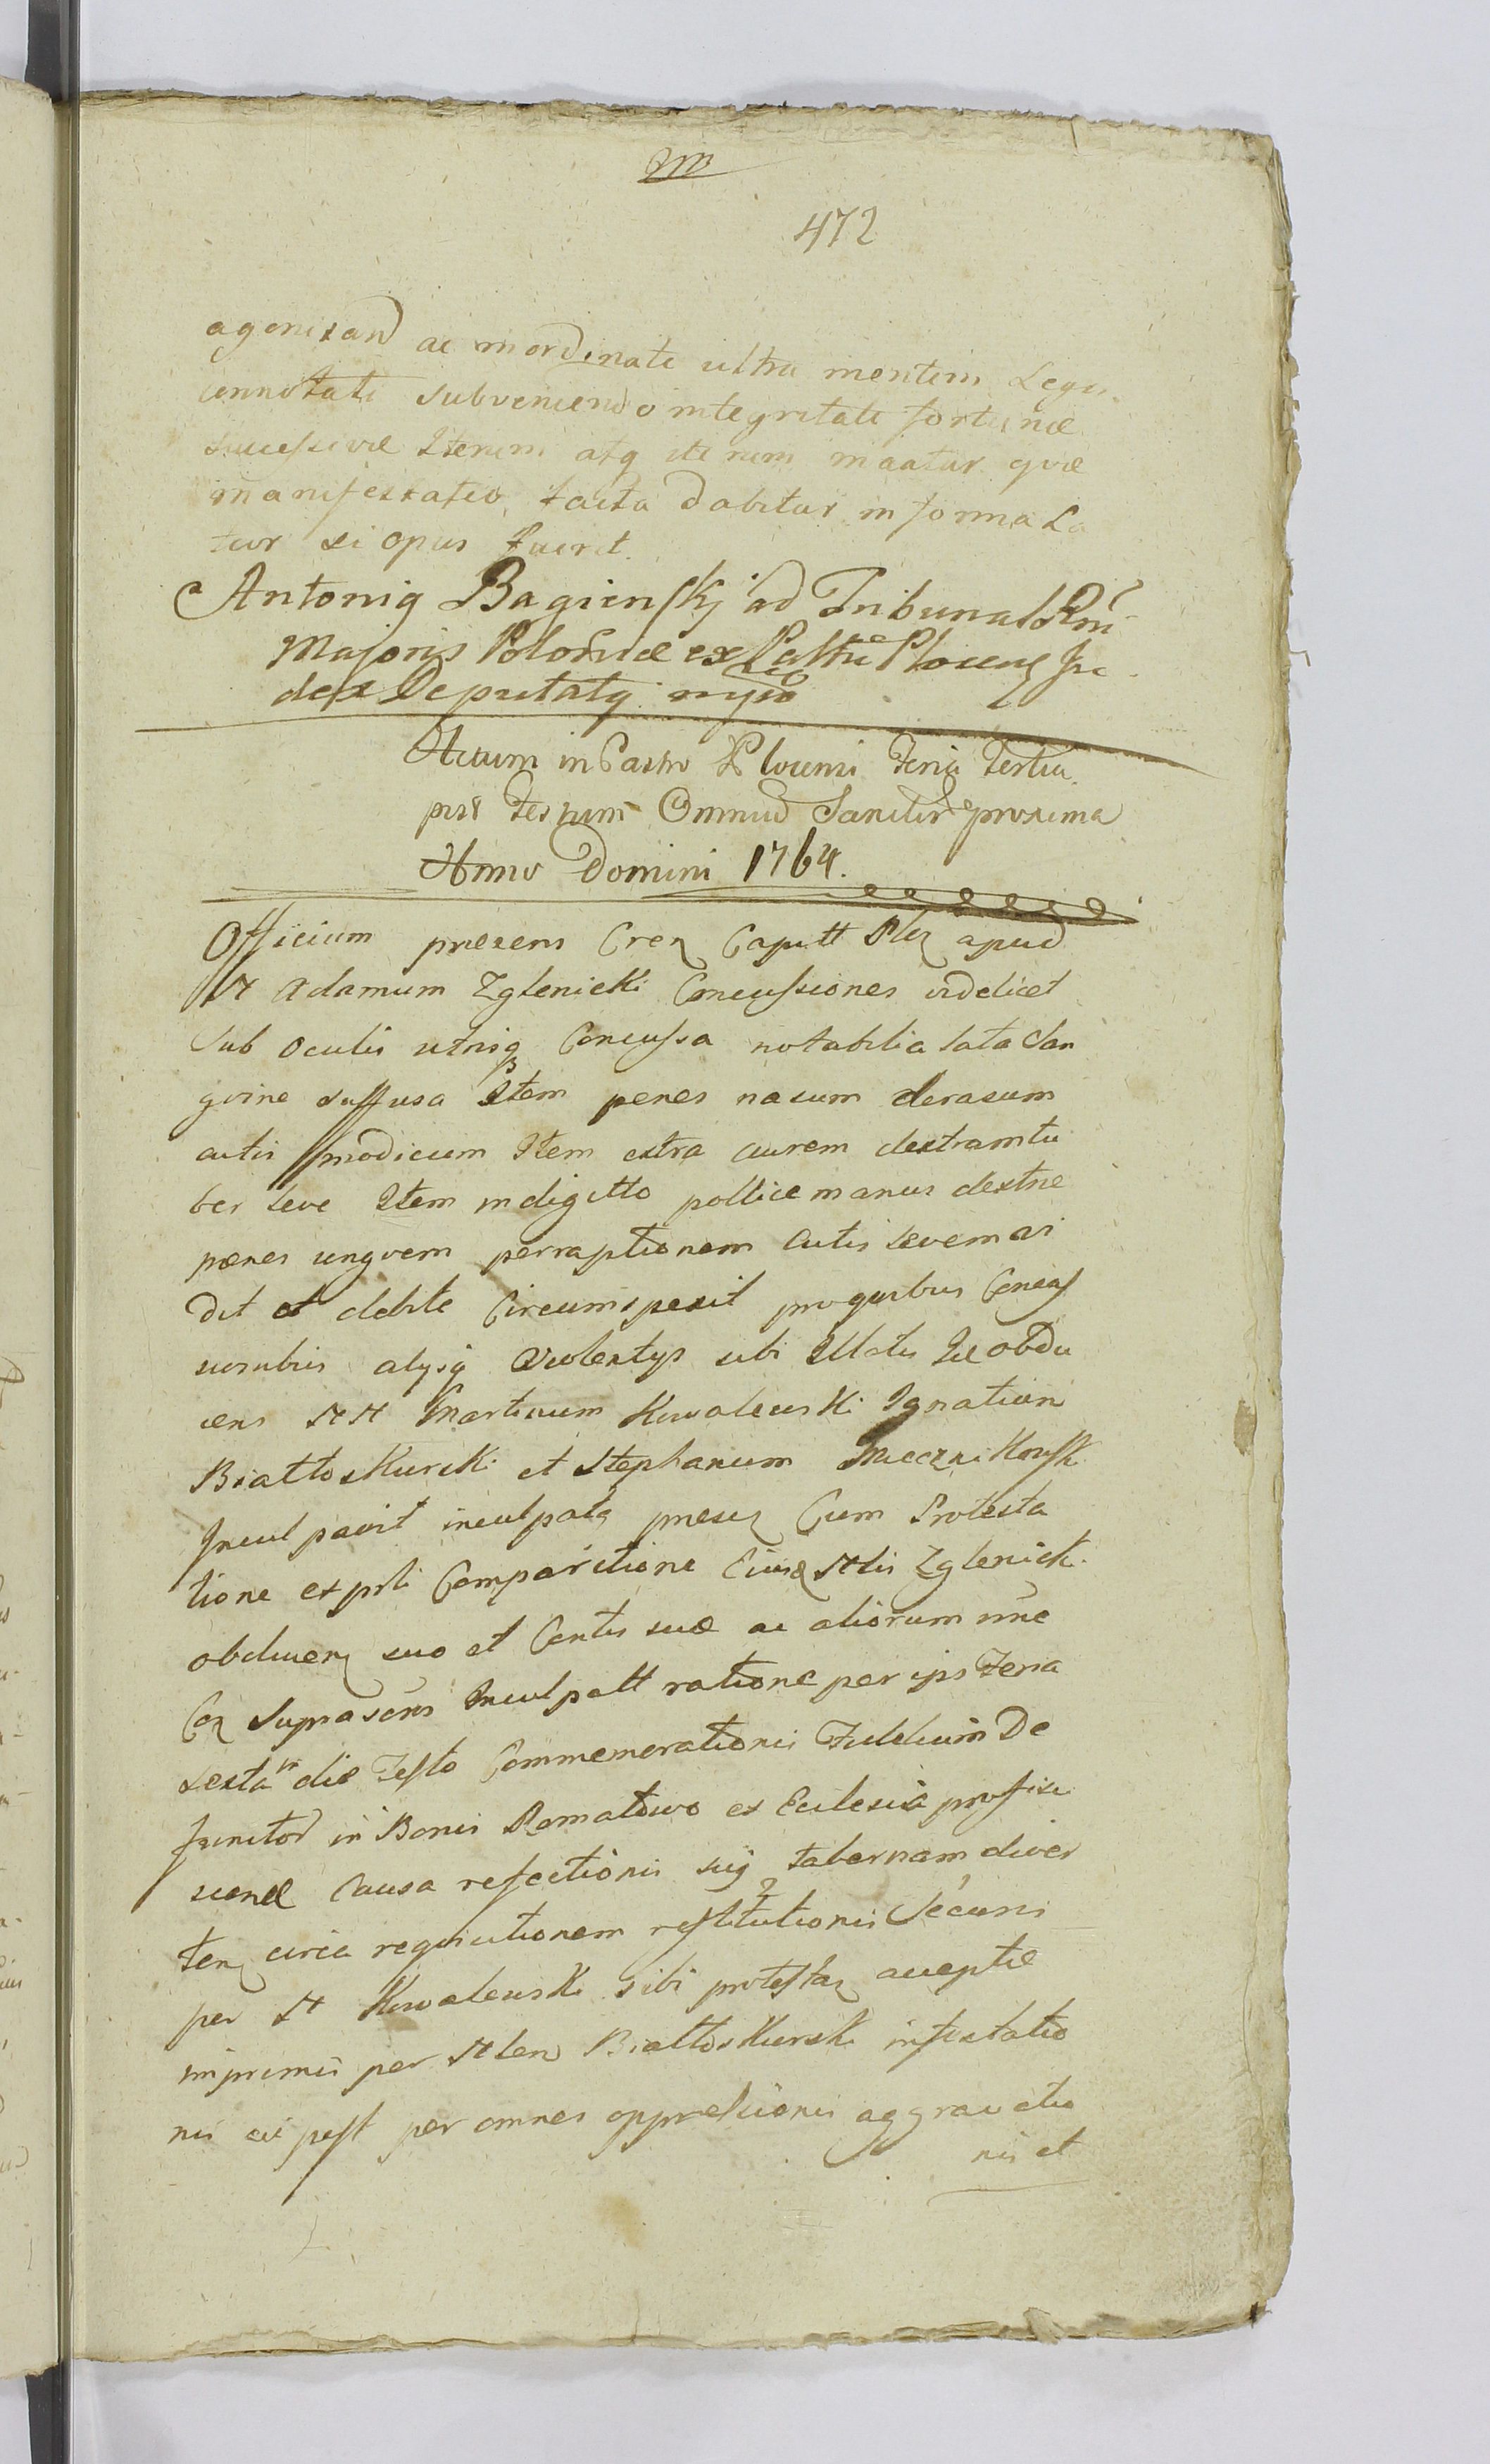 472
agonizand ac inordinate ultra mentem Legis
connotati subveniendo integritati fortunæ
successivæ Iterum atq iterum maatur quæ
manifestatio facta dabitur in forma La
tior si opus fuerit.
Antonig Bagienskj ad Tribunal
Majoris Poloniæ ex Plocens Ju
dex Deputatg mpio
Actum in Castro Plocensi Feria Tertia
post Festum Omniu Sanctor proxima
Anno Domini 1764.
Officium presens Cren Capitt apud
N Adamum Zglenicki Concussiones videlicet
sub oculis utrisq Concussa notabilia lata San
gvine suffusa Item penes nasum derasum
cutis modicum Item extra aurem dextram tu
ber leve Item in digitto pollice manus dextræ
penes ungvem perraptionem cutis levem vi
dit et debite Circumspexit pro quibus Concus
sionibus alijsq violentijs sibi Illatis Se obdu
cens NN Martinum Kowalewski Ignatium
Biattoskurski et Stephanum
Inculpavit inculpatq presen Cum Protesta
tione ex psti Comparitione Ejusd Nlis Zglenick
obducen suo et Contis suæ ac aliorum nne
Con suprascris Inculpatt ratione per ips Feria
sexta die Festo Commemorationis Fidelium De
functor in Bonis Romatowo ex Ecclesia profisc
scend Causa refectionis suij tabernam diver
ten circa requisitionem restitutionis Securis
per N Kowalewski sibi protestan acceptæ
imprimis per Nlen Biattoskurski infestatio
nis ei post per omnes oppressionis aggravatio
nis et